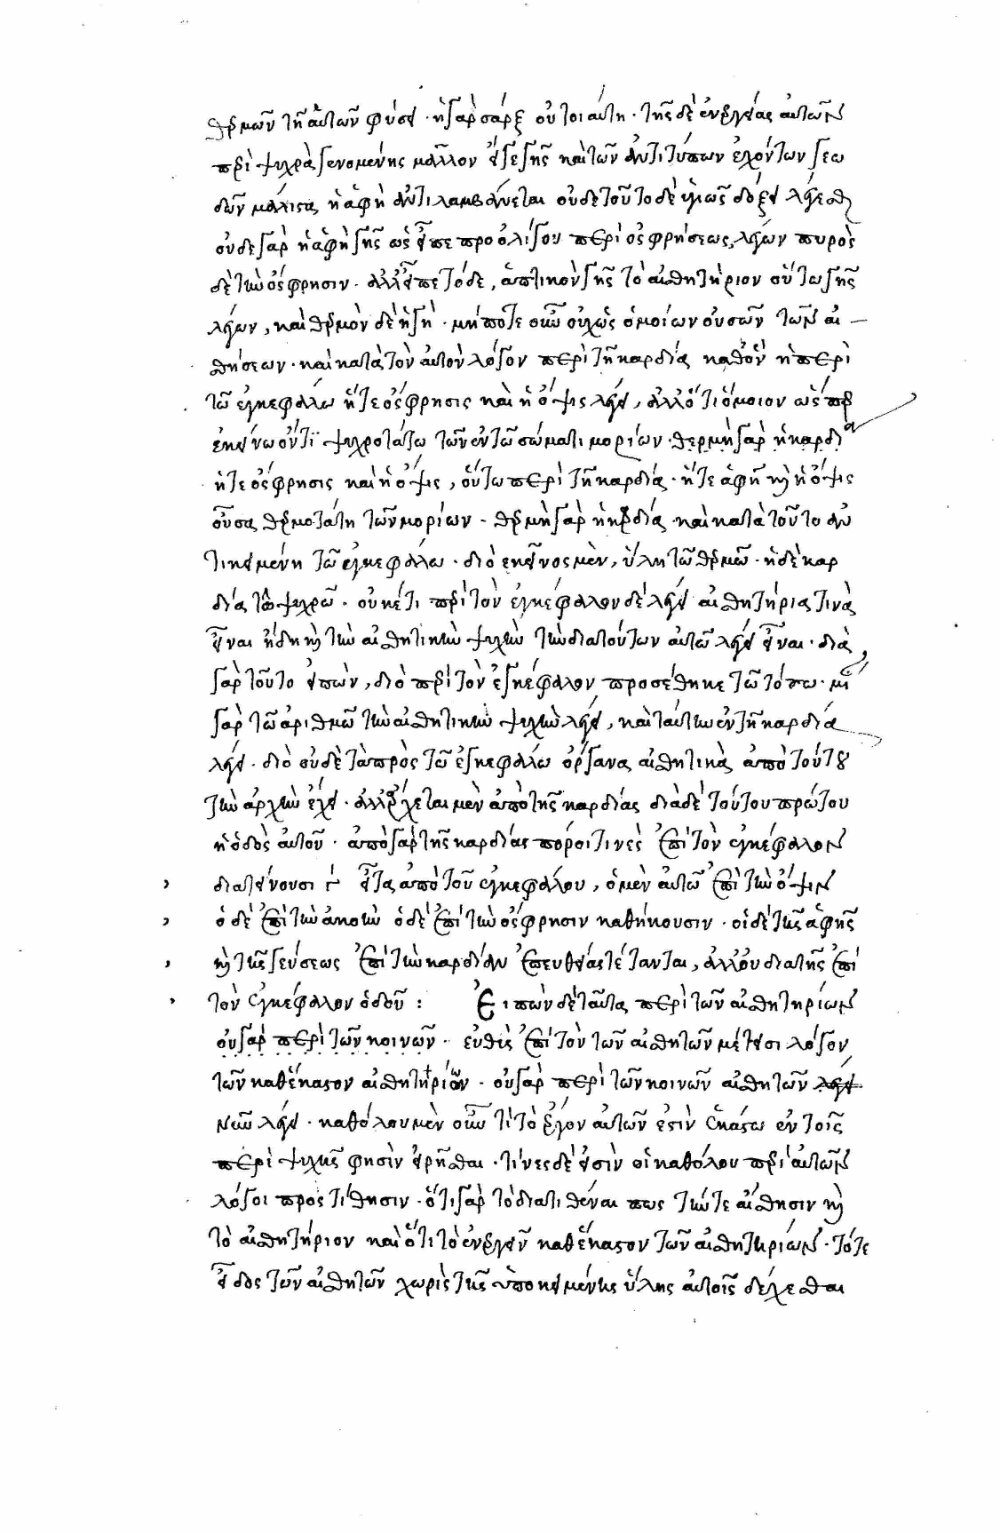 θερμῶν τῇ αὐτῶν φύσει · ἡ γὰρ σὰρξ οὐ τοιαύτη · τῆς δὲ ἐνεργείας αὐτῶν
περὶ ψυχρὰ γενομένης μᾶλλον ἢ γε γῆς καὶ τῶν ἀντιτύπων ἐχόντων γεω
δῶν μάλιστα ἡ ἁφὴ ἀντιλαμβάνεται οὐδὲ τοῦτο δὲ ἱκανῶς δόξει λέγεσθαι
οὐδὲ γὰρ ἡ ἁφὴ γῆς ὡς εἶπε πρὸ ὀλίγου περὶ ὀσφρήσεως, λέγων πυρὸς
δὲ τὴν ὄσφρησιν · ἀλλ' εἶπε τόδε, ἁπτικὸν γῆς τὸ αἰσθητήριον οὕτω γῆς
λέγων, καὶ θερμὸν δὲ ἡ γῆ · μήποτε οὖν οὐχ ὡς ὁμοίων οὐσῶν τῶν αἰ
σθήσεων · καὶ κατὰ τὸν αὐτὸν λόγον περὶ τῇ καρδίᾳ καθ' ὃν ἡ περὶ
τῷ ἐγκεφάλῳ ἥ τε ὄσφρησις καὶ ἡ ὄψις λέγει, ἀλλ' ὅτι ὅμοιον ὥσπερ
ἐκείνῳ ὄντι ψυχροτάτῳ τῶν ἐν τῷ σώματι μορίων · θερμὴ γὰρ ἡ καρδία
ἥ τε ὄσφρησις καὶ ἡ ὄψις, οὕτω περὶ τῇ καρδίᾳ · ἥ τε ἁφὴ καὶ ἡ ὄψις
οὖσα θερμοτάτη τῶν μορίων · θερμὴ γὰρ ἡ καρδία · καὶ κατὰ τοῦτο ἀν
τικειμένη τῷ ἐγκεφάλῳ · διὸ ἐκεῖνος μὲν, ὕλη τῷ θερμῷ · ἡ δὲ καρ
δία τῷ ψυχρῷ · οὐκέτι περὶ τὸν ἐγκέφαλον δὲ λέγει αἰσθητήρια τινὰ
εἶναι ἤδη καὶ τὴν αἰσθητικὴν ψυχὴν τὴν διὰ τούτων αὐτῷ λέγει εἶναι · διὰ
γὰρ τοῦτο εἰπὼν, διὸ περὶ τὸν ἐγκέφαλον προσέθηκε τῷ τόπῳ · μία
γὰρ τῷ ἀριθμῷ τὴν αἰσθητικὴν ψυχὴν λέγει, καὶ ταύτην ἐν τῇ καρδίᾳ
λέγει · διὸ οὐδὲ τὰ πρὸς τῷ ἐγκεφάλῳ ὄργανα αἰσθητικὰ ἀπὸ τούτου
τὴν ἀρχὴν ἔχει · ἀλλ' ἄρχεται μὲν ἀπὸ τῆς καρδίας διὰ δὲ τούτου πρώτου
ἡ ὁδὸς αὐτοῦ · ἀπὸ γὰρ τῆς καρδίας πόροι τινὲς ἐπὶ τὸν ἐγκέφαλον
διατείνουσι εἶτα ἀπὸ τοῦ ἐγκεφάλου, ὁ μὲν αὐτῶν ἐπὶ τὴν ὄψιν
ὁ δὲ ἐπὶ τὴν ἀκοὴν ὁ δὲ ἐπὶ τὴν ὄσφρησιν καθήκουσιν · οἱ δὲ τῆς ἁφῆς
καὶ τῆς γεύσεως ἐπὶ τὴν καρδίαν ἐπευθείας τέτανται, ἀλλ' οὐ διὰ τῆς ἐπὶ
τὸν ἐγκέφαλον ὁδοῦ : Εἰπὼν δὲ ταῦτα περὶ τῶν αἰσθητηρίων
οὐ γὰρ περὶ τῶν κοινῶν · εὐθὺς ἐπὶ τὸν τῶν αἰσθητῶν μέτεισι λόγον
τῶν καθ' ἕκαστον αἰσθητήριον · οὐ γὰρ περὶ τῶν κοινῶν αἰσθητῶν λέγει
νῦν λέγει · καθόλου μὲν οὖν τί τὸ ἔργον αὐτῶν ἐστὶν ἑκάστῳ ἐν τοῖς
περὶ ψυχῆς φησὶν εἰρῆσθαι · τίνες δέ εἰσιν οἱ καθόλου περὶ αὐτῶν
λόγοι προστίθησιν · ὅτι γὰρ τὸ διατιθέναι πως τήν τε αἴσθησιν καὶ
τὸ αἰσθητήριον καὶ ὅτι τὸ ἐνεργεῖν καθ' ἕκαστον τῶν αἰσθητηρίων · τό τε
εἶδος τῶν αἰσθητῶν χωρὶς τῆς ὑποκειμένης ὕλης αὐτοῖς δέχεσθαι